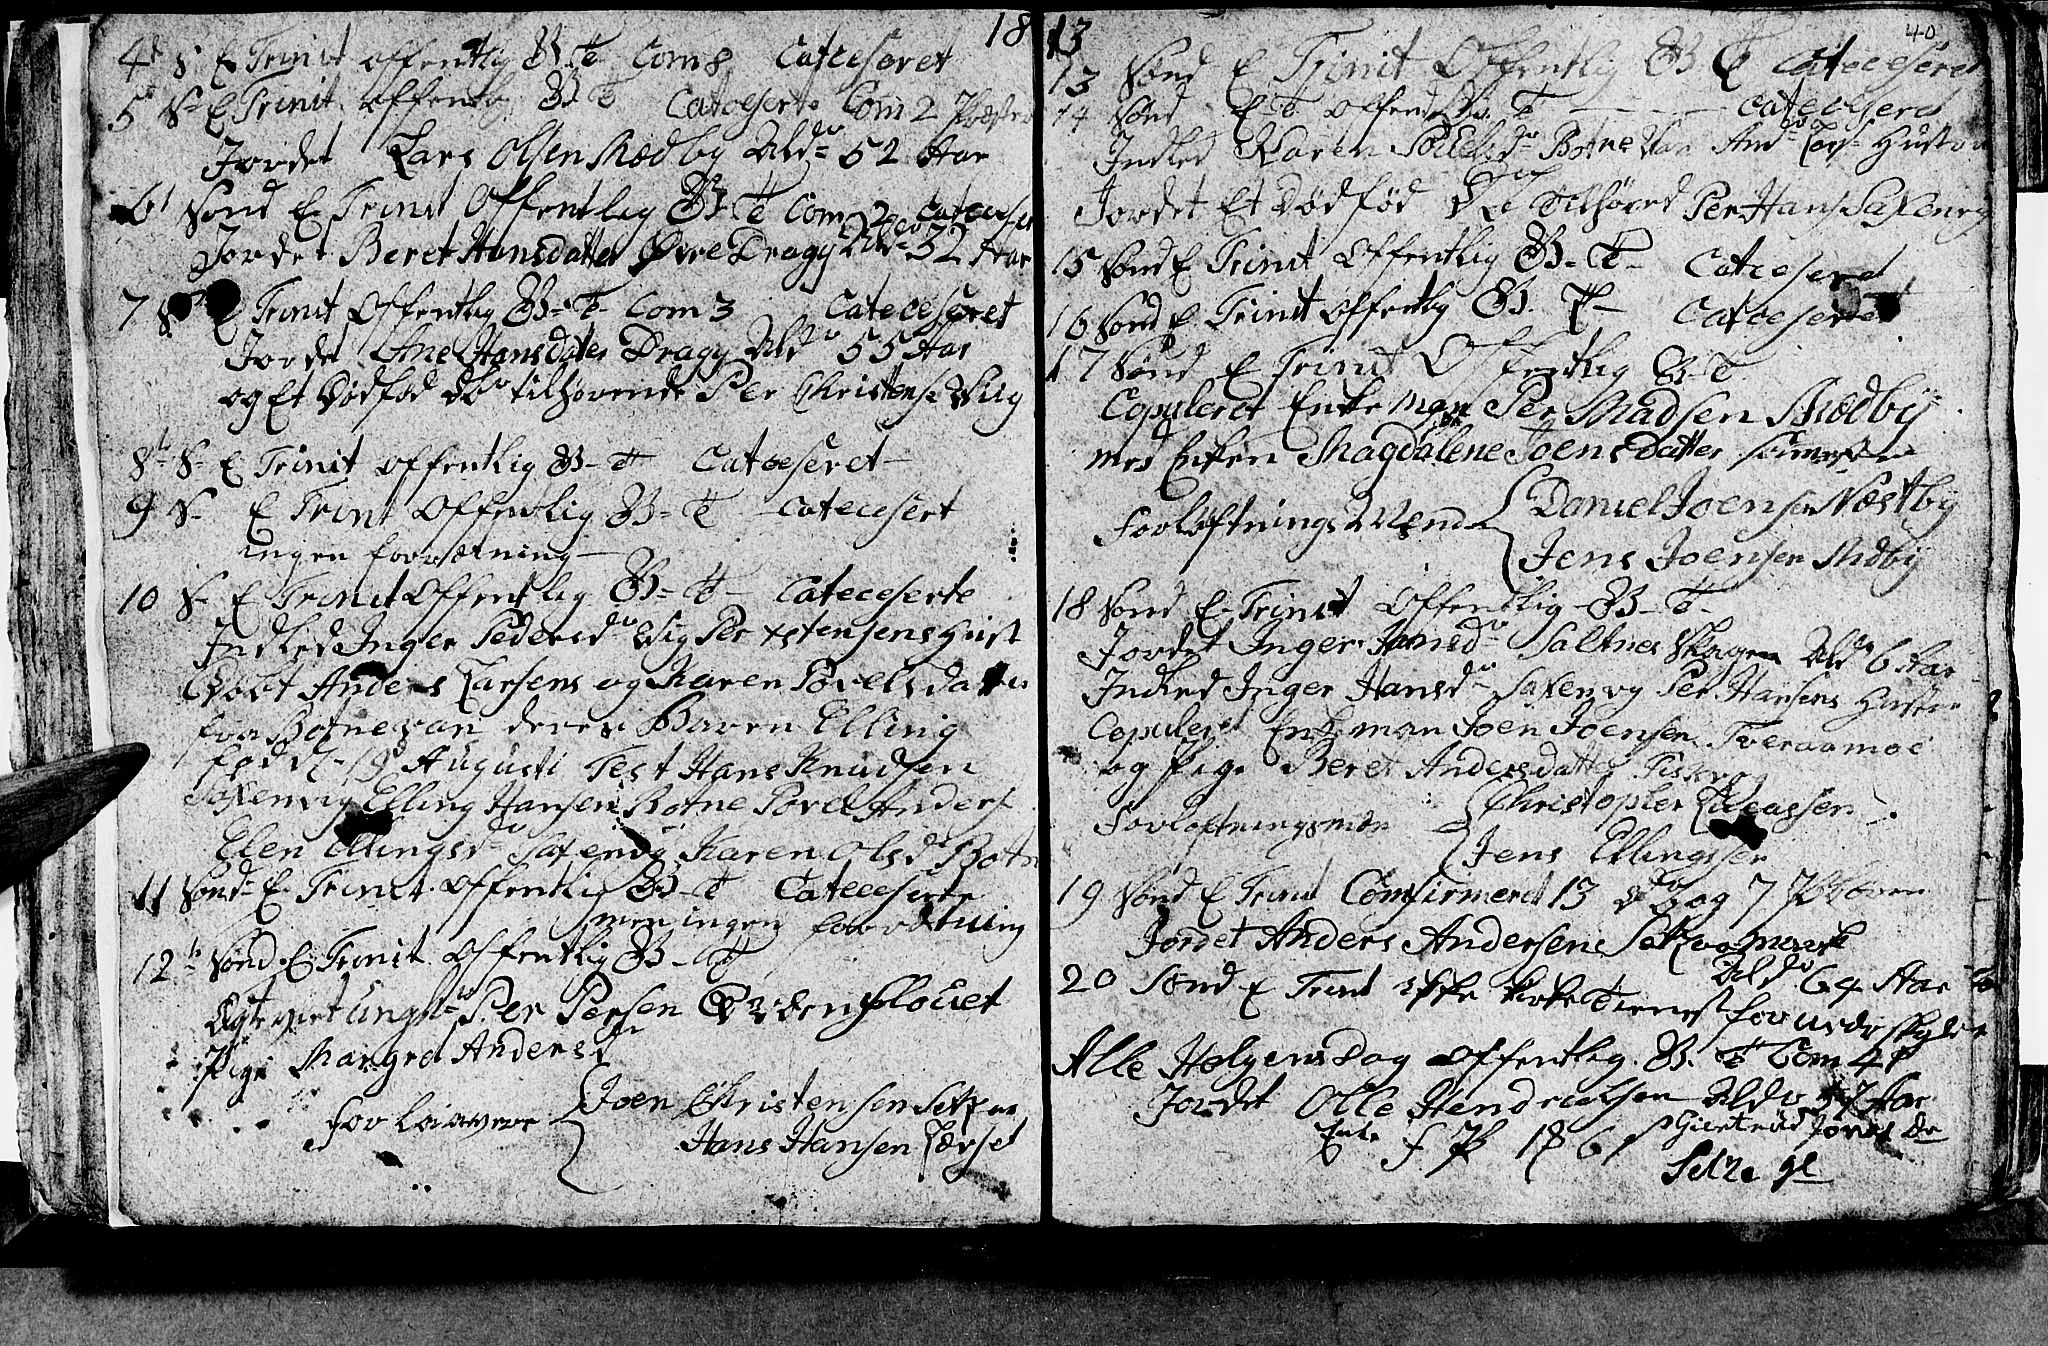 18
4de S E Trinit offentlig G-T- Com 8 Cateceseret
5 S- E Trinit. offentlig G-T Catecserte Com 2
Jordet Lars Olsen Mædby Ald= 52 Aar
6t Sønd E- Trinit Offentlig G-T Com 20 Catecesert
Jordet Beret Hansdatter Øvre Dragy Ald= 52 Aar
7 S E Trinit Offentlig G-T- Com 3 Cateceseret
Jordet Ane Hansdatter Dragy Ald 55 Aar
og Et Dødfød tilhørende Per Christense Viig
8de S- E Trinit offentlig G-T Cateceseret
9 S- E Trinit Offentlig G-T Catecesert
ingen forrætning
10 S- E Trinit Offentlig G-T- Cateceserte
Indled Inger Pedersd Vig Per xstensens Hust
Døbt Anders Larsens og Karen Povelsdatter
fra Botnevan deres Barn Elling
fød d 19 Augusti Test Hans Knudsen
Saxenvig Elling Hansen Botne Povel Anders
Elen Ellingsd Saxenvig Karen Olsd Botn
11 Sønd- E- Trinit. offentlig G-T Cateceserte
men ingen forrætning
12te Sønd. E Trinit. offentlig G-T
Ægteviet Ungk Per Persen flouet
Pige Margret Andersd
forlovere Joen Christensen Setzaa
Hans Hansen Larset
13 40
13 Sønd E Trinit Offentlig G T Cateceseret
14 Sønd E-T offentl G-T Cateceseret
Indled Karen Povelsd Botnevan And Lars- Hustru
Jordet Et Dødfød tilhørend Per Hans Saxenvig
15 Sønd E Trinit Offentlig G-T- Cateceseret
16 Sønd E Trinit offentlig G. T- Cateceseret
17 Sønd E Trinit Offentlig G-T.
Copuleret Enkeman Per Madsen Mædby
med Enken Magdalene Joensdatter
Forløftnings Mend Daniel Joensen Næstby
Jens Joensen Mædby
18 Sønd E-Trinit Offentlig G-T-
Jordet Inger Hansd Saltnes Skagen Ald 6 Aar
Indled Inger Hansd Saxenvig Per Hansens Hustru
Copuleret Enkeman Joen Joensen Tveraamoe
og Pige Beret Andersdatter Fiskvog
Forloftningsmæn Christopher Lucassen
Jens Ellingsen
19 Sønd E Trinit Confirmeret 13 og 7 Piger
Jordet Anders Andersen
Ald 64 Aar
20 Sønd E Trinit ikke kirke Tienest for veder skyld
Alle Helgens Dag offentlig. G. T Com 41
Jordet Olle Hendrichsen Ald 7 Aar
Enke Giertrud Jonas D